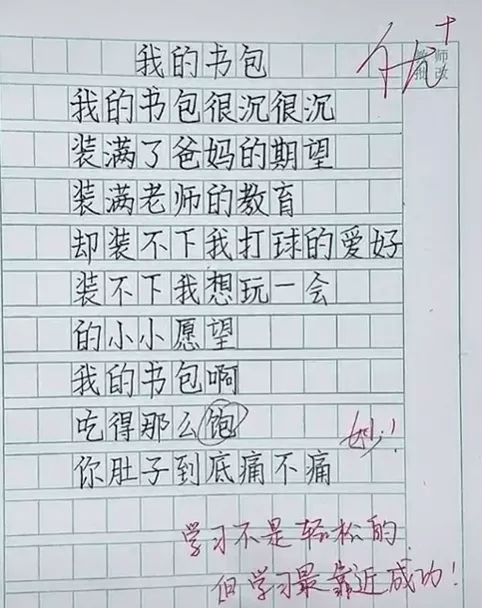 我的书包
优+
教师
批改
我的书包很沉很沉
装满了爸妈的期望
装满老师的教育
却装不下我打球的爱好
装不下我想玩一会
的小小愿望
我的书包啊
吃得那么饱
妙!
你肚子到底痛不痛
学习不是轻松的
但学习最靠近成功!